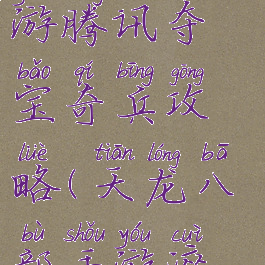 游腾讯夺
bǎo qí bīng gōng
宝奇兵攻
lüè tiān lóng bā
略(天龙八
bù shǒu yóu cuì
部手游淬